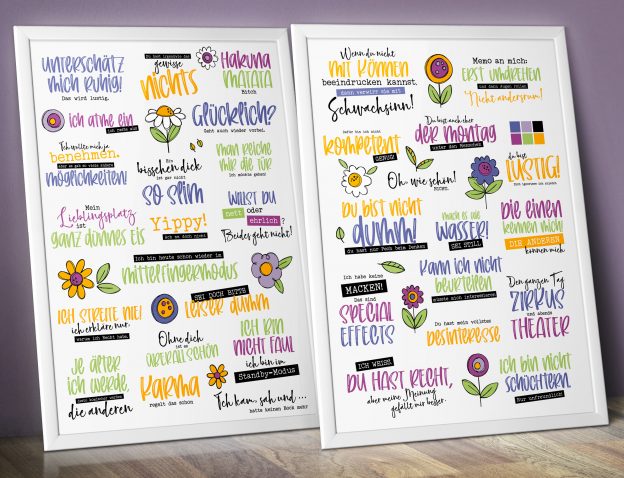 unterschätz
mich ruhig!
Das wird lustig.
Du hast trotzdem im
gewisse
nichts
Hakuna
MATATA
Bitch
ich atme ein
ich raste aus
GLÜCKLICH?
Geht auch wieder vorbei.
Ich wollte mich ja
benehmen.
aber es gab so viele andere
möglichkeiten!
Ein
bisschen dick
ist gar nicht
SO SLIM
man reiche
mir die Tür
Ich möchte gehen!
Mein
Lieblingsplatz
ist
ganz dünnes Eis
Yippy!
Ach ne doch nicht
WILLST DU
nett oder
ehrlich?
Beides geht nicht!
Ich bin heute schon wieder im
mittelfingermodus
SEI DOCH BITTE
leiser dumm
ICH STREITE NIE!
ich erkläre nur,
warum ich Recht habe.
Ohne dich
ist es
ÜBERALL SCHÖN
ICH BIN
NICHT FAUL
ich bin im
Standby-Modus
JE ÄLTER
ICH WERDE,
desto komischer werden
die anderen
KARMA
regelt das schon
Ich kam, sah und ...
hatte keinen Bock mehr
Wenn du nicht
MIT KÖNNEN
beeindrucken kannst,
dann verwirr sie mit
Schwachsinn!
Memo an mich:
ERST UMDREHEN
und dann Augen rollen.
Nicht andersrum!
Dafür bin ich nicht
kompetent
GENUG!
Du bist auch eher
der montag
unter den Menschen
du bist
LUSTIG!
Dich ignoriere ich zuletzt.
Oh - wie schön!
NICHT.
DU BIST NICHT
DUMM!
du hast nur Pech beim Denken
mach es wie
WASSER!
SEI STILL
DIE EINEN
KENNEN MICH!
DIE ANDEREN
können mich
Ich habe keine
MACKEN!
Das sind
SPECIAL
EFFECTS
Kann ich nicht
beurteilen
müsste mich interessieren
Den ganzen Tag
ZIRKUS
und abends
THEATER
Du hast mein vollstes
DESINTERESSE
ICH WEISS,
DU HAST RECHT,
aber meine Meinung
gefällt mir besser.
ich bin nicht
SCHÜCHTERN.
Nur unfreundlich!